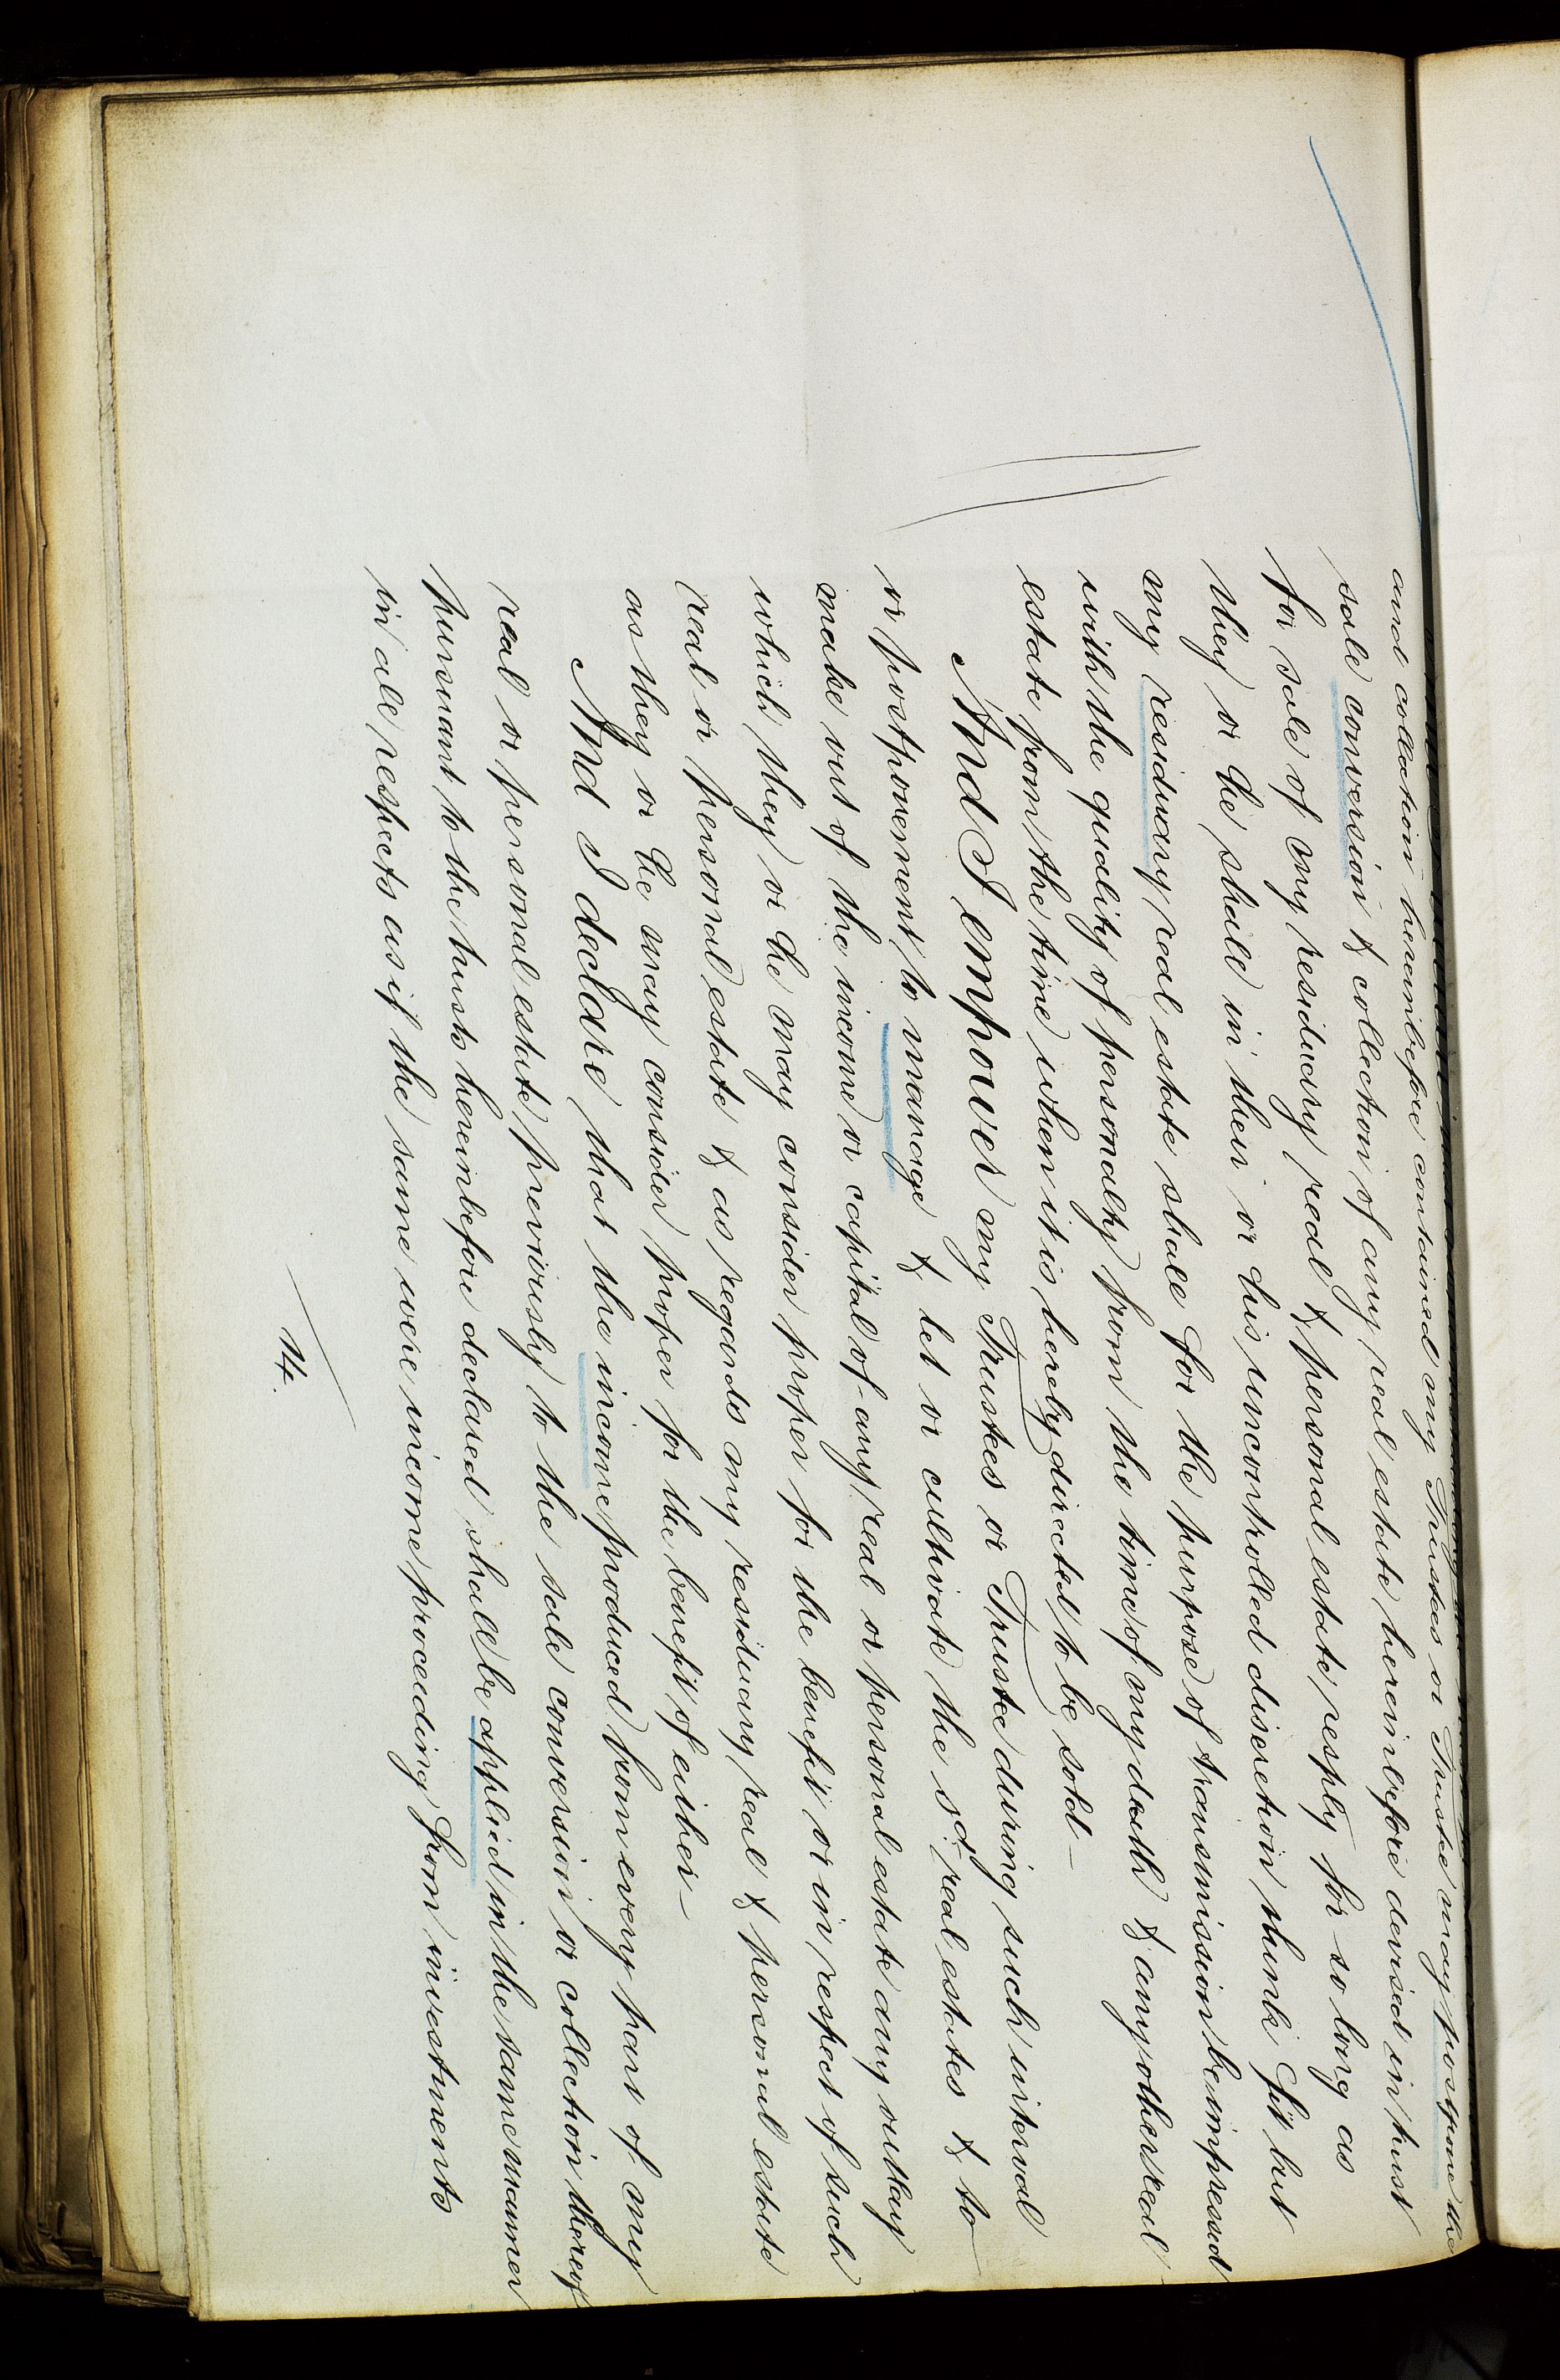 and collection hereinbefore contained my Trustees or Trustee may postpone the
sale conversion & collection of any real estate hereinbefore devised in trust
for sale of my residuary real & personal estate resply for so long as
they or he shall in their or his uncontrolled discretion think fit but
my residuary real estate shall for the purpose of transmission be impressed
with the quality of personalty from the time of my death & any other real
estate from the time when it is hereby directed to be sold —
And I empower my Trustees or Trustee during such interval
or postponement to manage & let or cultivate the sd. real estates & to
make out of the income or capital of any real or personal estate any outlay
which they or he may consider proper for the benefit or in respect of such
real or personal estate & as regards my residuary real & personal estate
as they or he may consider proper for the benefit of either —
And I declare that the income produced from every part of my
real or personal estate previously to the sale conversion or collection thereof
pursuant to the trusts hereinbefore declared shall be applied in the same manner
in all respects as if the same were income proceeding from investments
14.